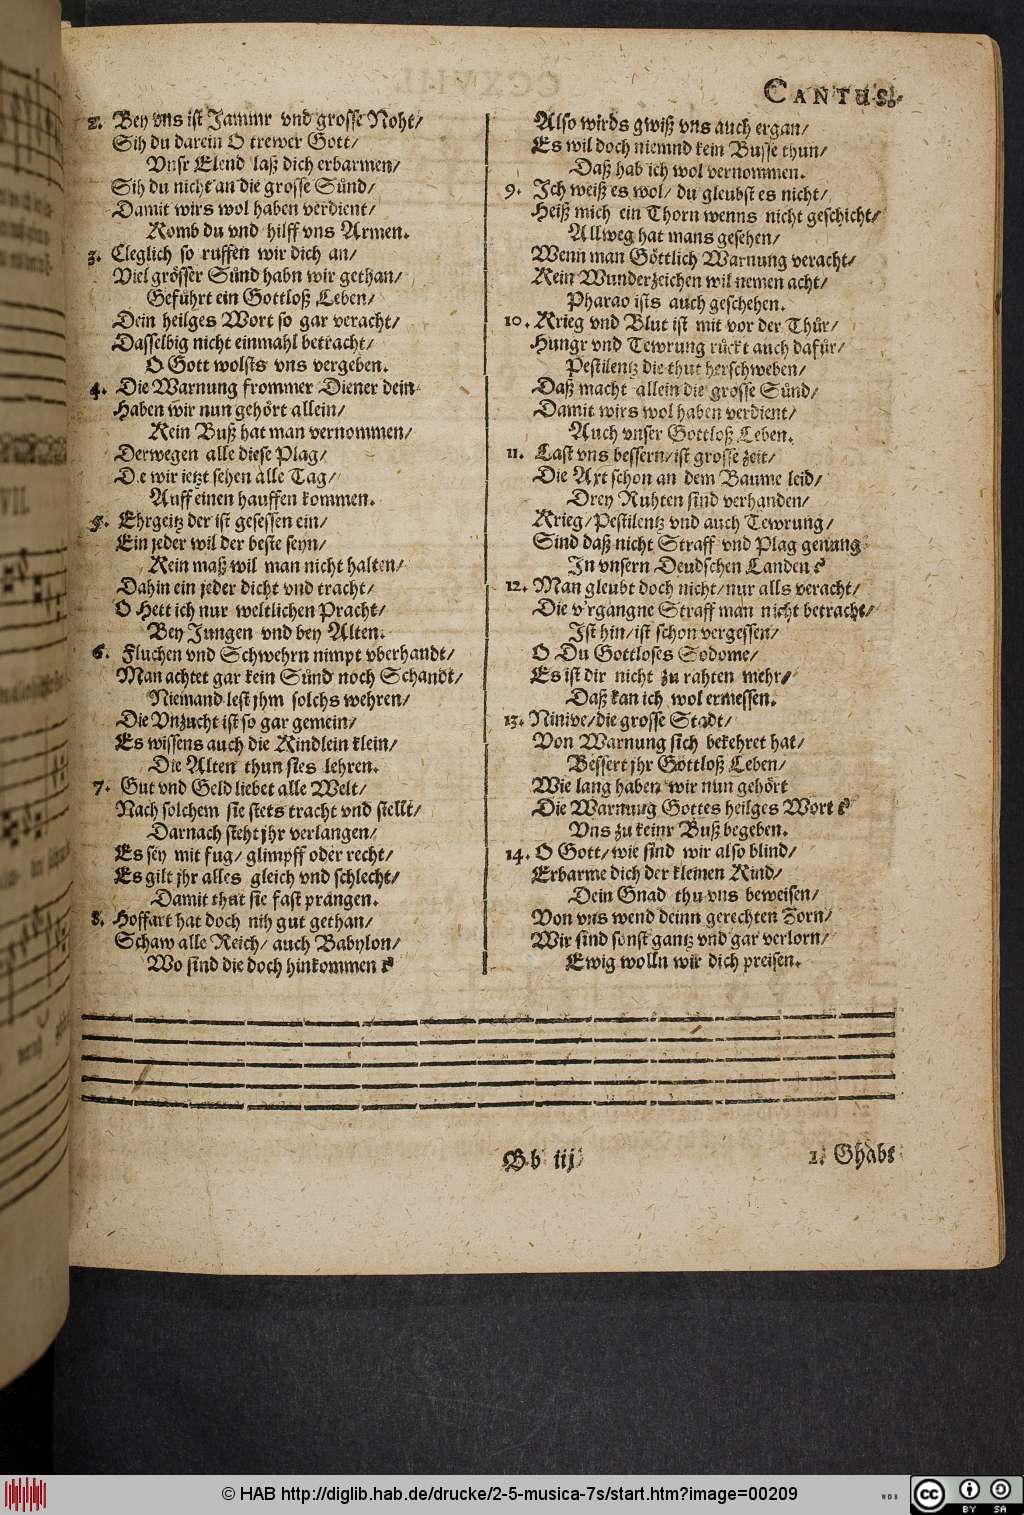 CANTUS.
2. Bey vns ist Jammr vnd grosse Noht/
Sih du darein O trewer Gott/
Vnsr Elend laß dich erbarmen/
Sih du nicht an die grosse Sünd/
Damit wirs wol haben verdient/
Komb du vnd hilff vns Armen.
3. Cleglich so ruffen wir dich an/
Viel grösser Sünd habn wir gethan/
Geführt ein Gottloß Leben/
Dein heilges Wort so gar veracht/
Dasselbig nicht einmahl betracht/
O Gott wolsts vns vergeben.
4. Die Warnung frommer Diener dein
Haben wir nun gehört allein/
Kein Buß hat man vernommen/
Derwegen alle diese Plag/
Die wir jetzt sehen alle Tag/
Auff einen hauffen kommen.
5. Ehrgeitz der ist gesessen ein/
Ein jeder wil der beste seyn/
Kein maß wil man nicht halten/
Dahin ein jeder dicht vnd tracht/
O Hett ich nur weltlichen Pracht/
Bey Jungen vnd bey Alten.
6. Fluchen vnd Schwehrn nimpt vberhandt/
Man achtet gar kein Sünd noch Schandt/
Niemand lest jhm solchs wehren/
Die Vnzucht ist so gar gemein/
Es wissens auch die Kindlein klein/
Die Alten thun sies lehren.
7. Gut vnd Geld liebet alle Welt/
Nach solchem sie stets tracht vnd stellt/
Darnach steht jhr verlangen/
Es sey mit fug/ glimpff oder recht/
Es gilt jhr alles gleich vnd schlecht/
Damit that sie fast prangen.
8. Hoffart hat doch nih gut gethan/
Schaw alle Reich/ auch Babylon/
Wo sind die doch hinkommen?
Also wirds gwiß vns auch ergan/
Es wil doch niemnd kein Busse thun/
Daß hab ich wol vernommen.
9. Ich weiß es wol/ du gleubst es nicht/
Heiß mich ein Thorn wenns nicht geschicht/
Allweg hat mans gesehen/
Wenn man Göttlich Warnung veracht/
Kein Wunderzeichen wil nemen acht/
Pharao ists auch geschehen.
10. Krieg vnd Blut ist mit vor der Thür/
Hungr vnd Tewrung rückt auch dafür/
Pestilentz die thut herschweben/
Daß macht allein die grosse Sünd/
Damit wirs wol haben verdient/
Auch vnser Gottloß Leben.
11. Last vns bessern/ ist grosse zeit/
Die Axt schon an dem Baume leid/
Drey Ruhten sind verhanden/
Krieg/ Pestilentz vnd auch Tewrung/
Sind daß nicht Straff vnd Plag genung
In vnsern Deudschen Landen?
12. Man gleubt doch nicht/ nur alls veracht/
Die v'rgangne Straff man nicht betracht/
Ist hin/ ist schon vergessen/
O Du Gottloses Sodome/
Es ist dir nicht zu rahten mehr/
Daß kan ich wol ermessen.
13. Ninive/ die grosse Stadt/
Von Warnung sich bekehret hat/
Bessert jhr Gottloß Leben/
Wie lang haben wir nun gehört
Die Warnung Gottes heilges Wort?
Vns zu keinr Buß begeben.
14. O Gott/ wie sind wir also blind/
Erbarme dich der kleinen Kind/
Dein Gnad thu vns beweisen/
Von vns wend deinn gerechten Zorn/
Wir sind sonst gantz vnd gar verlorn/
Ewig wolln wir dich preisen.
Bb iij
1. Ghabt
© HAB http://diglib.hab.de/drucke/2-5-musica-7s/start.htm?image=00209
cc BY SA